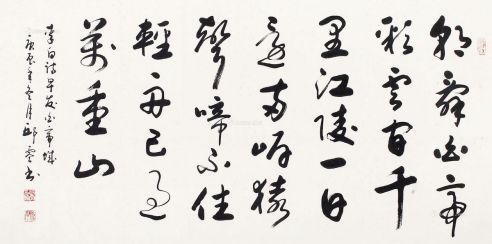 朝辭白帝
彩雲間千
里江陵一日
還兩岸猿
聲啼不住
輕舟已過
萬重山
李白詩早發白帝城
庚辰年冬月邱書